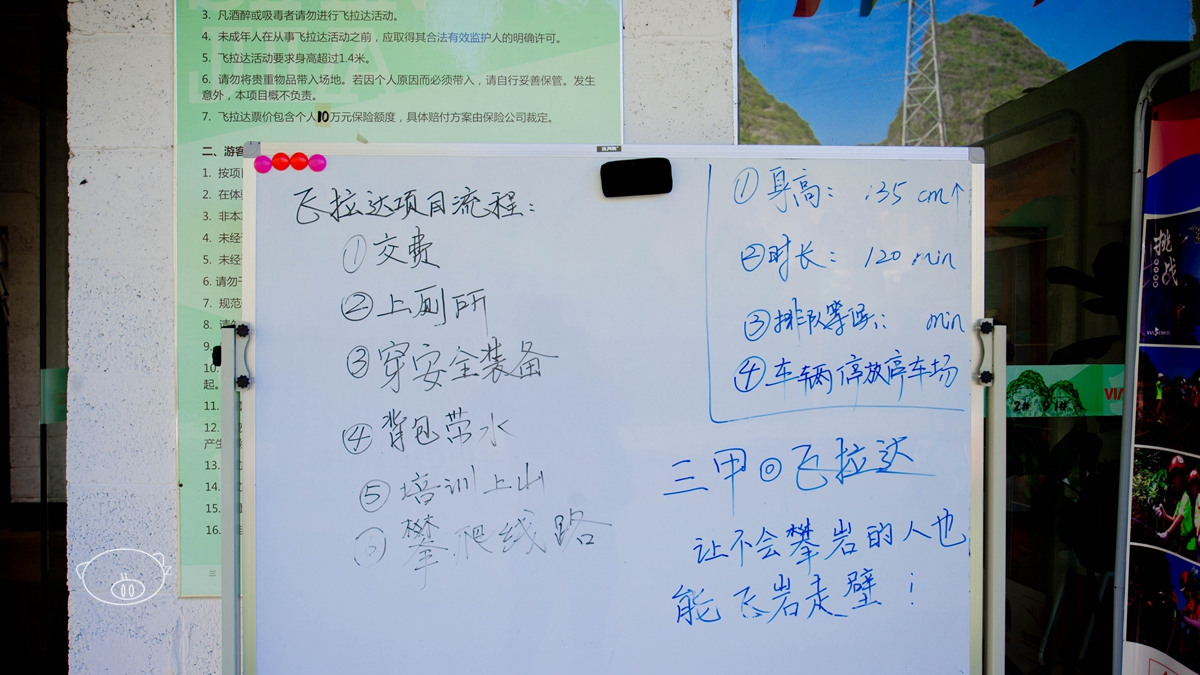 3. 凡酒醉或吸毒者请勿进行飞拉达活动。
4. 未成年人在从事飞拉达活动之前，应取得其合法有效监护人的明确许可。
5. 飞拉达活动要求身高超过1.4米。
6. 请勿将贵重物品带入场地。若因个人原因而必须带入，请自行妥善保管。发生
意外，本项目概不负责。
7. 飞拉达票价包含个人10万元保险额度，具体赔付方案由保险公司裁定。
二、游客
1. 按项
2. 在体
3. 非本
4. 未经
5. 未经
6. 请勿
7. 规范
8.
9.
10.
起。
11.
12.
产生
13.
14.
15.
16.
飞拉达项目流程：
①交费
②上厕所
③穿安全装备
④背包带水
⑤培训上山
⑥攀爬线路
①身高： 135 cm↑
②时长： 120 min
③排队等候： min
④车辆停放停车场
三甲◎飞拉达
让不会攀岩的人也
能飞岩走壁！
挑战
2# 1#
VIA